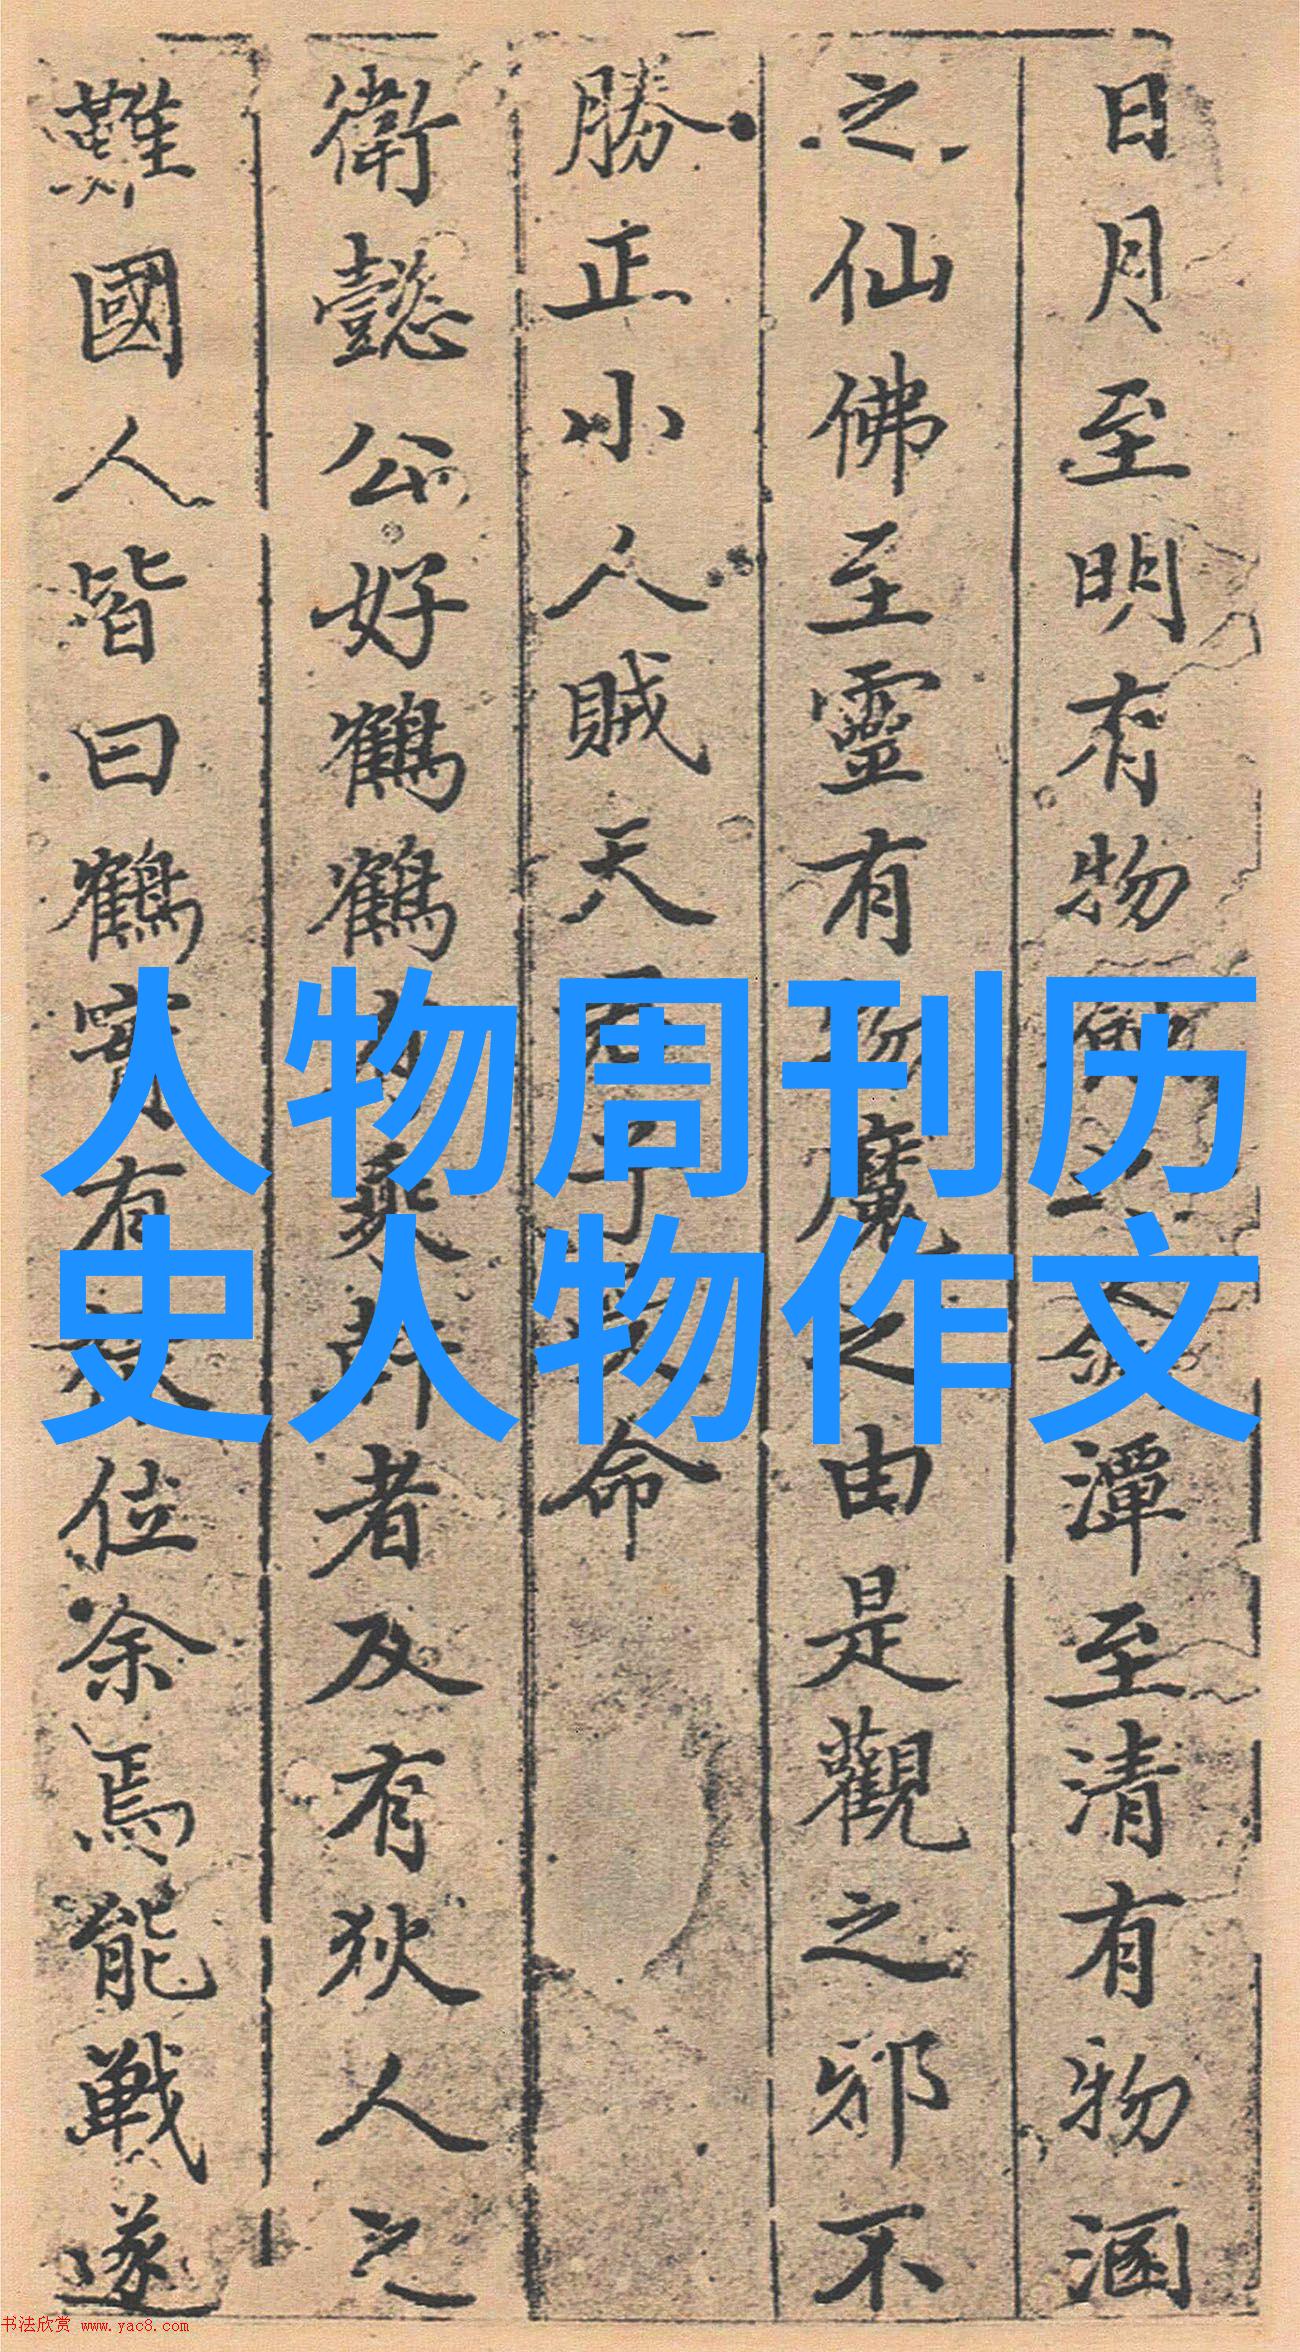 日月至明有物
潭至清有物涵
之仙佛至靈有
魔之由是觀之邪不
勝正小人賊天
命
衛懿公好鶴鶴
乘軒者及有狄人之
難國人皆曰鶴實有
位余焉能戰遂
人物周刊历
史人物作文
书法欣赏 www.yac8.com